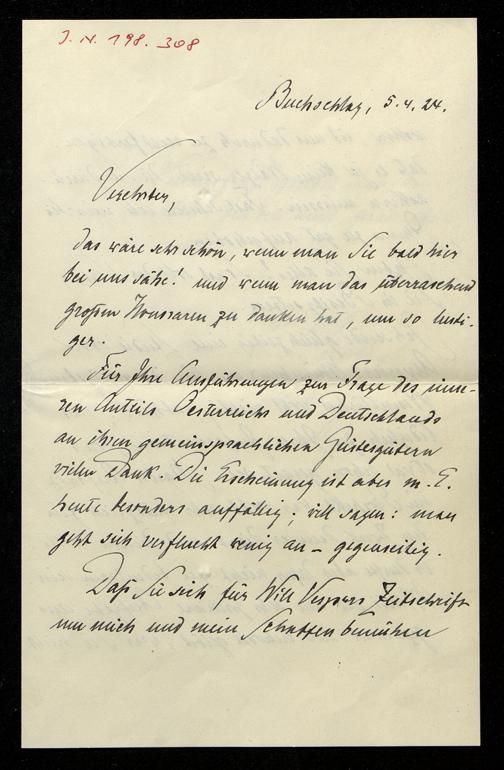 J. N. 198.308
Buchschlag, 5.4.24.
Verehrter,
das wäre sehr schön, wenn man Sie bald hier
bei uns sähe! und wenn man das überraschend
großen Honoraren zu danken hat, um so lusti-
ger.
Für Ihre Ausführungen zur Frage des inne-
ren Anteils Oesterreichs und Deutschlands
an ihren gemeinsprachlichen Geistesgütern
vielen Dank. Die Erscheinung ist aber m. E.
heute besonders auffällig; will sagen: man
geht sich verflucht wenig an – gegenseitig.
Daß Sie sich für Will Vespers Zeitschrift
um mich und mein Schaffen bemühen